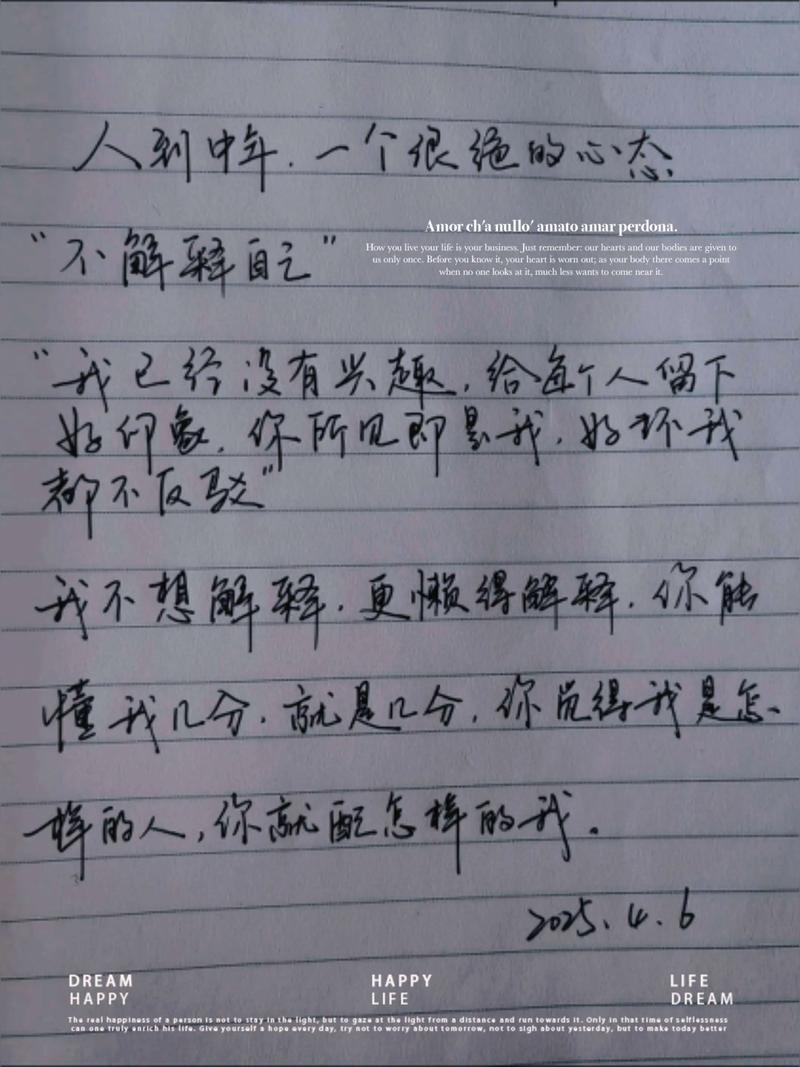 人到中年.一个很绝的心态
Amor ch'a nullo' amato amar perdona.
"不解释自己"
How you live your life is your business. Just remember: our hearts and our bodies are given to
us only once. Before you know it, your heart is worn out; as your body there comes a point
when no one looks at it, much less wants to come near it.
"我已经没有兴趣,给每个人留下
好印象.你所见即是我.好坏我
都不反驳"
我不想解释.更懒得解释.你能
懂我几分.就是几分.你觉得我是怎、
样的人,你就配怎样的我。
2025.4.6
DREAM
HAPPY
HAPPY
LIFE
LIFE
DREAM
The real happiness of a person is not to stay in the light, but to gaze at the light from a distance and run towards it. Only in that time of selflessness
can one truly enrich his life. Give yourself a hope every day, try not to worry about tomorrow, not to sigh about yesterday, but to make today better